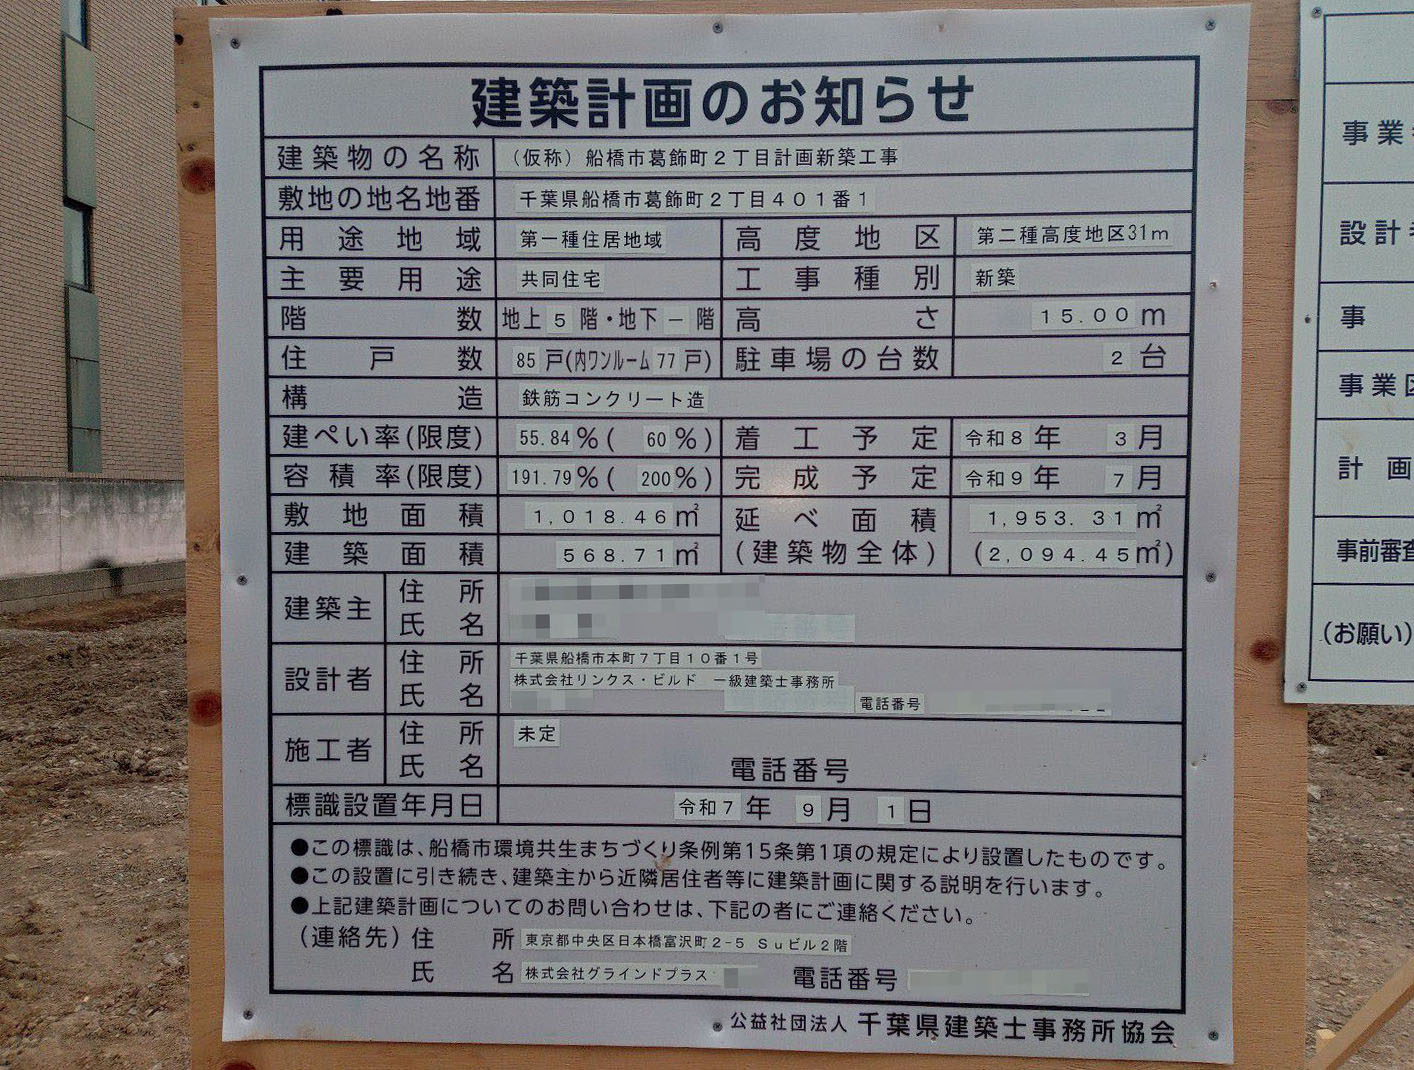 建築計画のお知らせ
建築物の名称 （仮称）船橋市葛飾町２丁目計画新築工事
敷地の地名地番 千葉県船橋市葛飾町２丁目４０１番１
用途地域 第一種住居地域 高度地区 第二種高度地区31ｍ
主要用途 共同住宅 工事種別 新築
階数 地上 5 階・地下 － 階 高さ 15.00 m
住戸数 85 戸(内ワンルーム 77 戸) 駐車場の台数 2 台
構造 鉄筋コンクリート造
建ぺい率(限度) 55.84 %( 60 %) 着工予定 令和8 年 3 月
容積率(限度) 191.79 %( 200 %) 完成予定 令和9 年 7 月
敷地面積 1,018.46 ㎡ 延べ面積 1,953.31 ㎡
建築面積 568.71 ㎡ (建築物全体) (2,094.45㎡)
建築主 住所
氏名
設計者 住所 千葉県船橋市本町７丁目１０番１号
氏名 株式会社リンクス・ビルド 一級建築士事務所
電話番号
施工者 住所 未定
氏名 電話番号
標識設置年月日 令和7 年 9 月 1 日
●この標識は、船橋市環境共生まちづくり条例第15条第1項の規定により設置したものです。
●この設置に引き続き、建築主から近隣居住者等に建築計画に関する説明を行います。
●上記建築計画についてのお問い合わせは、下記の者にご連絡ください。
(連絡先) 住所 東京都中央区日本橋富沢町２-５ Ｓｕビル２階
氏名 株式会社グラインドプラス 電話番号
公益社団法人 千葉県建築士事務所協会
事業
設計
事
事業区
計画
事前審査
(お願い)